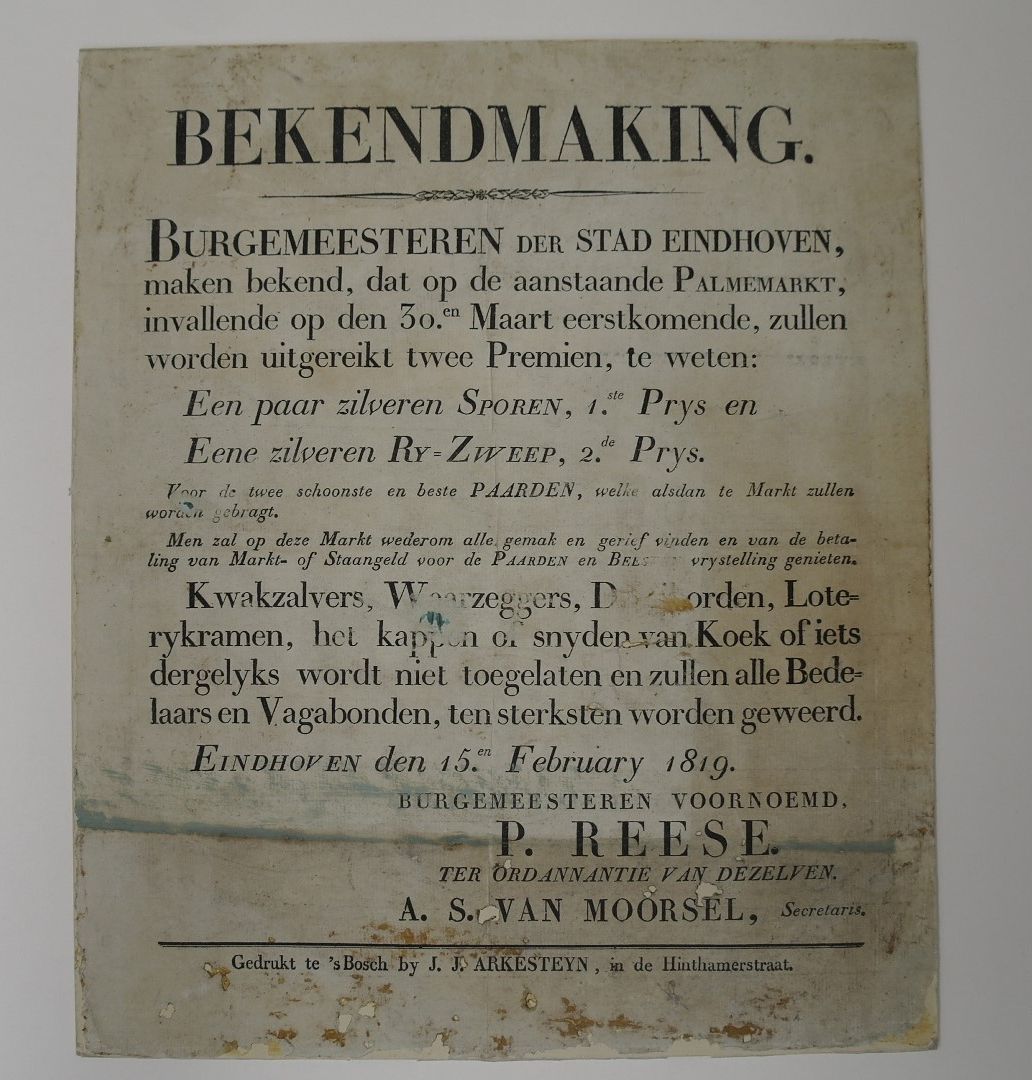 BEKENDMAKING.
BURGEMEESTEREN DER STAD EINDHOVEN,
maken bekend, dat op de aanstaande PALMEMARKT,
invallende op den 30.en Maart eerstkomende, zullen
worden uitgereikt twee Premien, te weten:
Een paar zilveren SPOREN, 1.ste Prys en
Eene zilveren RY=ZWEEP, 2.de Prys.
Voor de twee schoonste en beste PAARDEN, welke alsdan te Markt zullen
worden gebragt.
Men zal op deze Markt wederom alle gemak en gerief vinden en van de beta-
ling van Markt- of Staangeld voor de PAARDEN en vrystelling genieten.
Kwakzalvers, Waarzeggers, Lote=
rykramen, het kappen of snyden van Koek of iets
dergelyks wordt niet toegelaten en zullen alle Bede=
laars en Vagabonden, ten sterksten worden geweerd.
EINDHOVEN den 15.en February 1819.
BURGEMEESTEREN VOORNOEMD,
P. REESE.
TER ORDANNANTIE VAN DEZELVEN.
A. S. VAN MOORSEL, Secretaris.
Gedrukt te 's Bosch by J. J. ARKESTEYN, in de Hinthamerstraat.